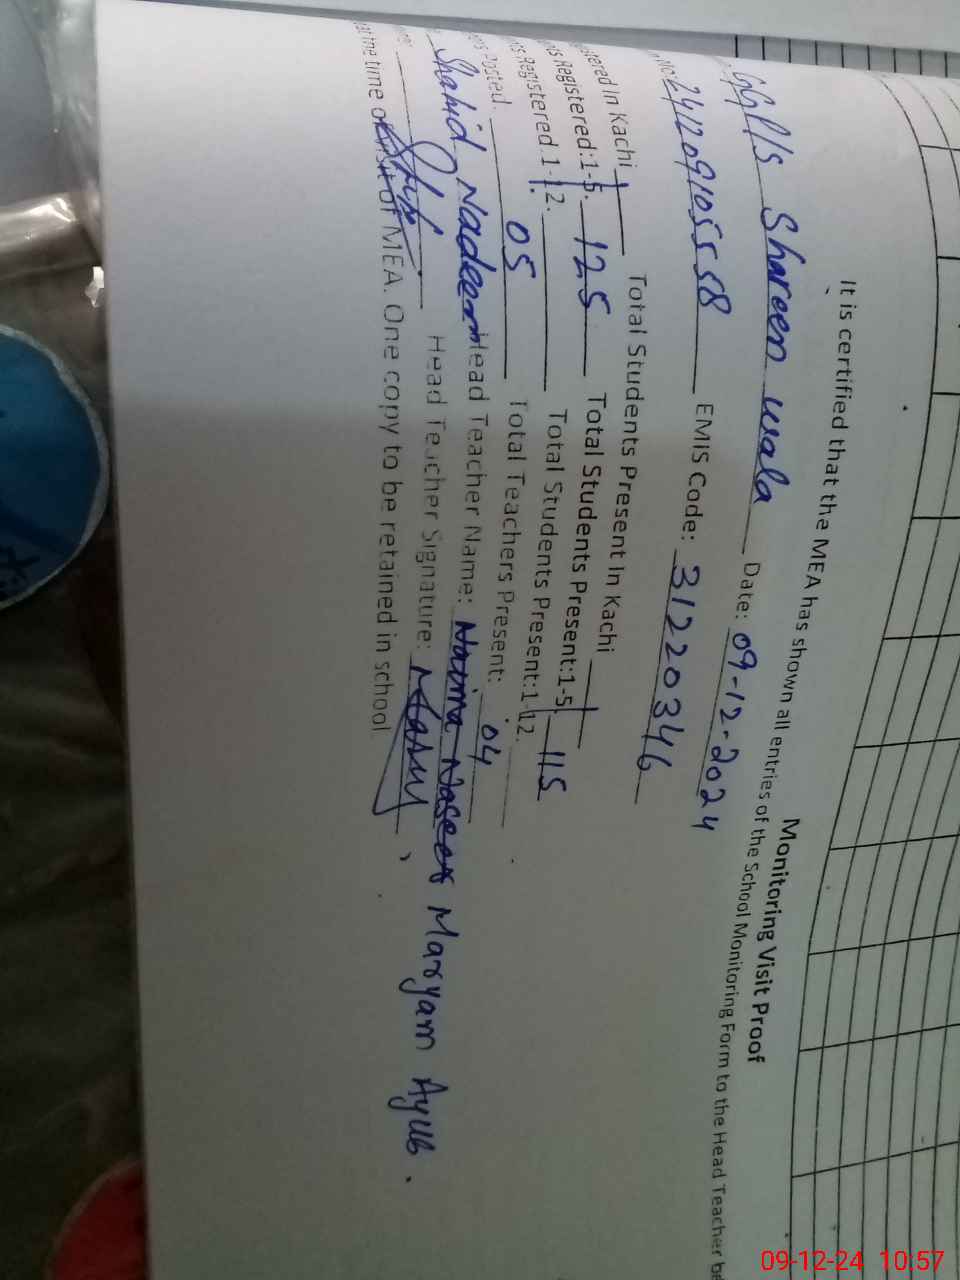 Monitoring Visit Proof
It is certified that the MEA has shown all entries of the School Monitoring Form to the Head Teacher be
GGP/S Shareen wala Date: 09-12-2024
No: 241209105558 EMIS Code: 31220346
stered In Kachi Total Students Present In Kachi
ts Registered:1-5. 125 Total Students Present:1-5. 115
ts Registered.1-12. Total Students Present:1-12.
rs Posted. 05 Total Teachers Present: 04
Shahid Nadeem Head Teacher Name: Naima Naseer Maryam Ayub.
Head Teacher Signature:
at the time of visit of MEA. One copy to be retained in school
09-12-24 10:57